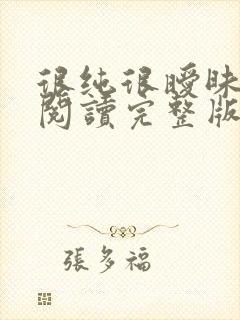 很純很曖昧
閱讀完整版
張多福